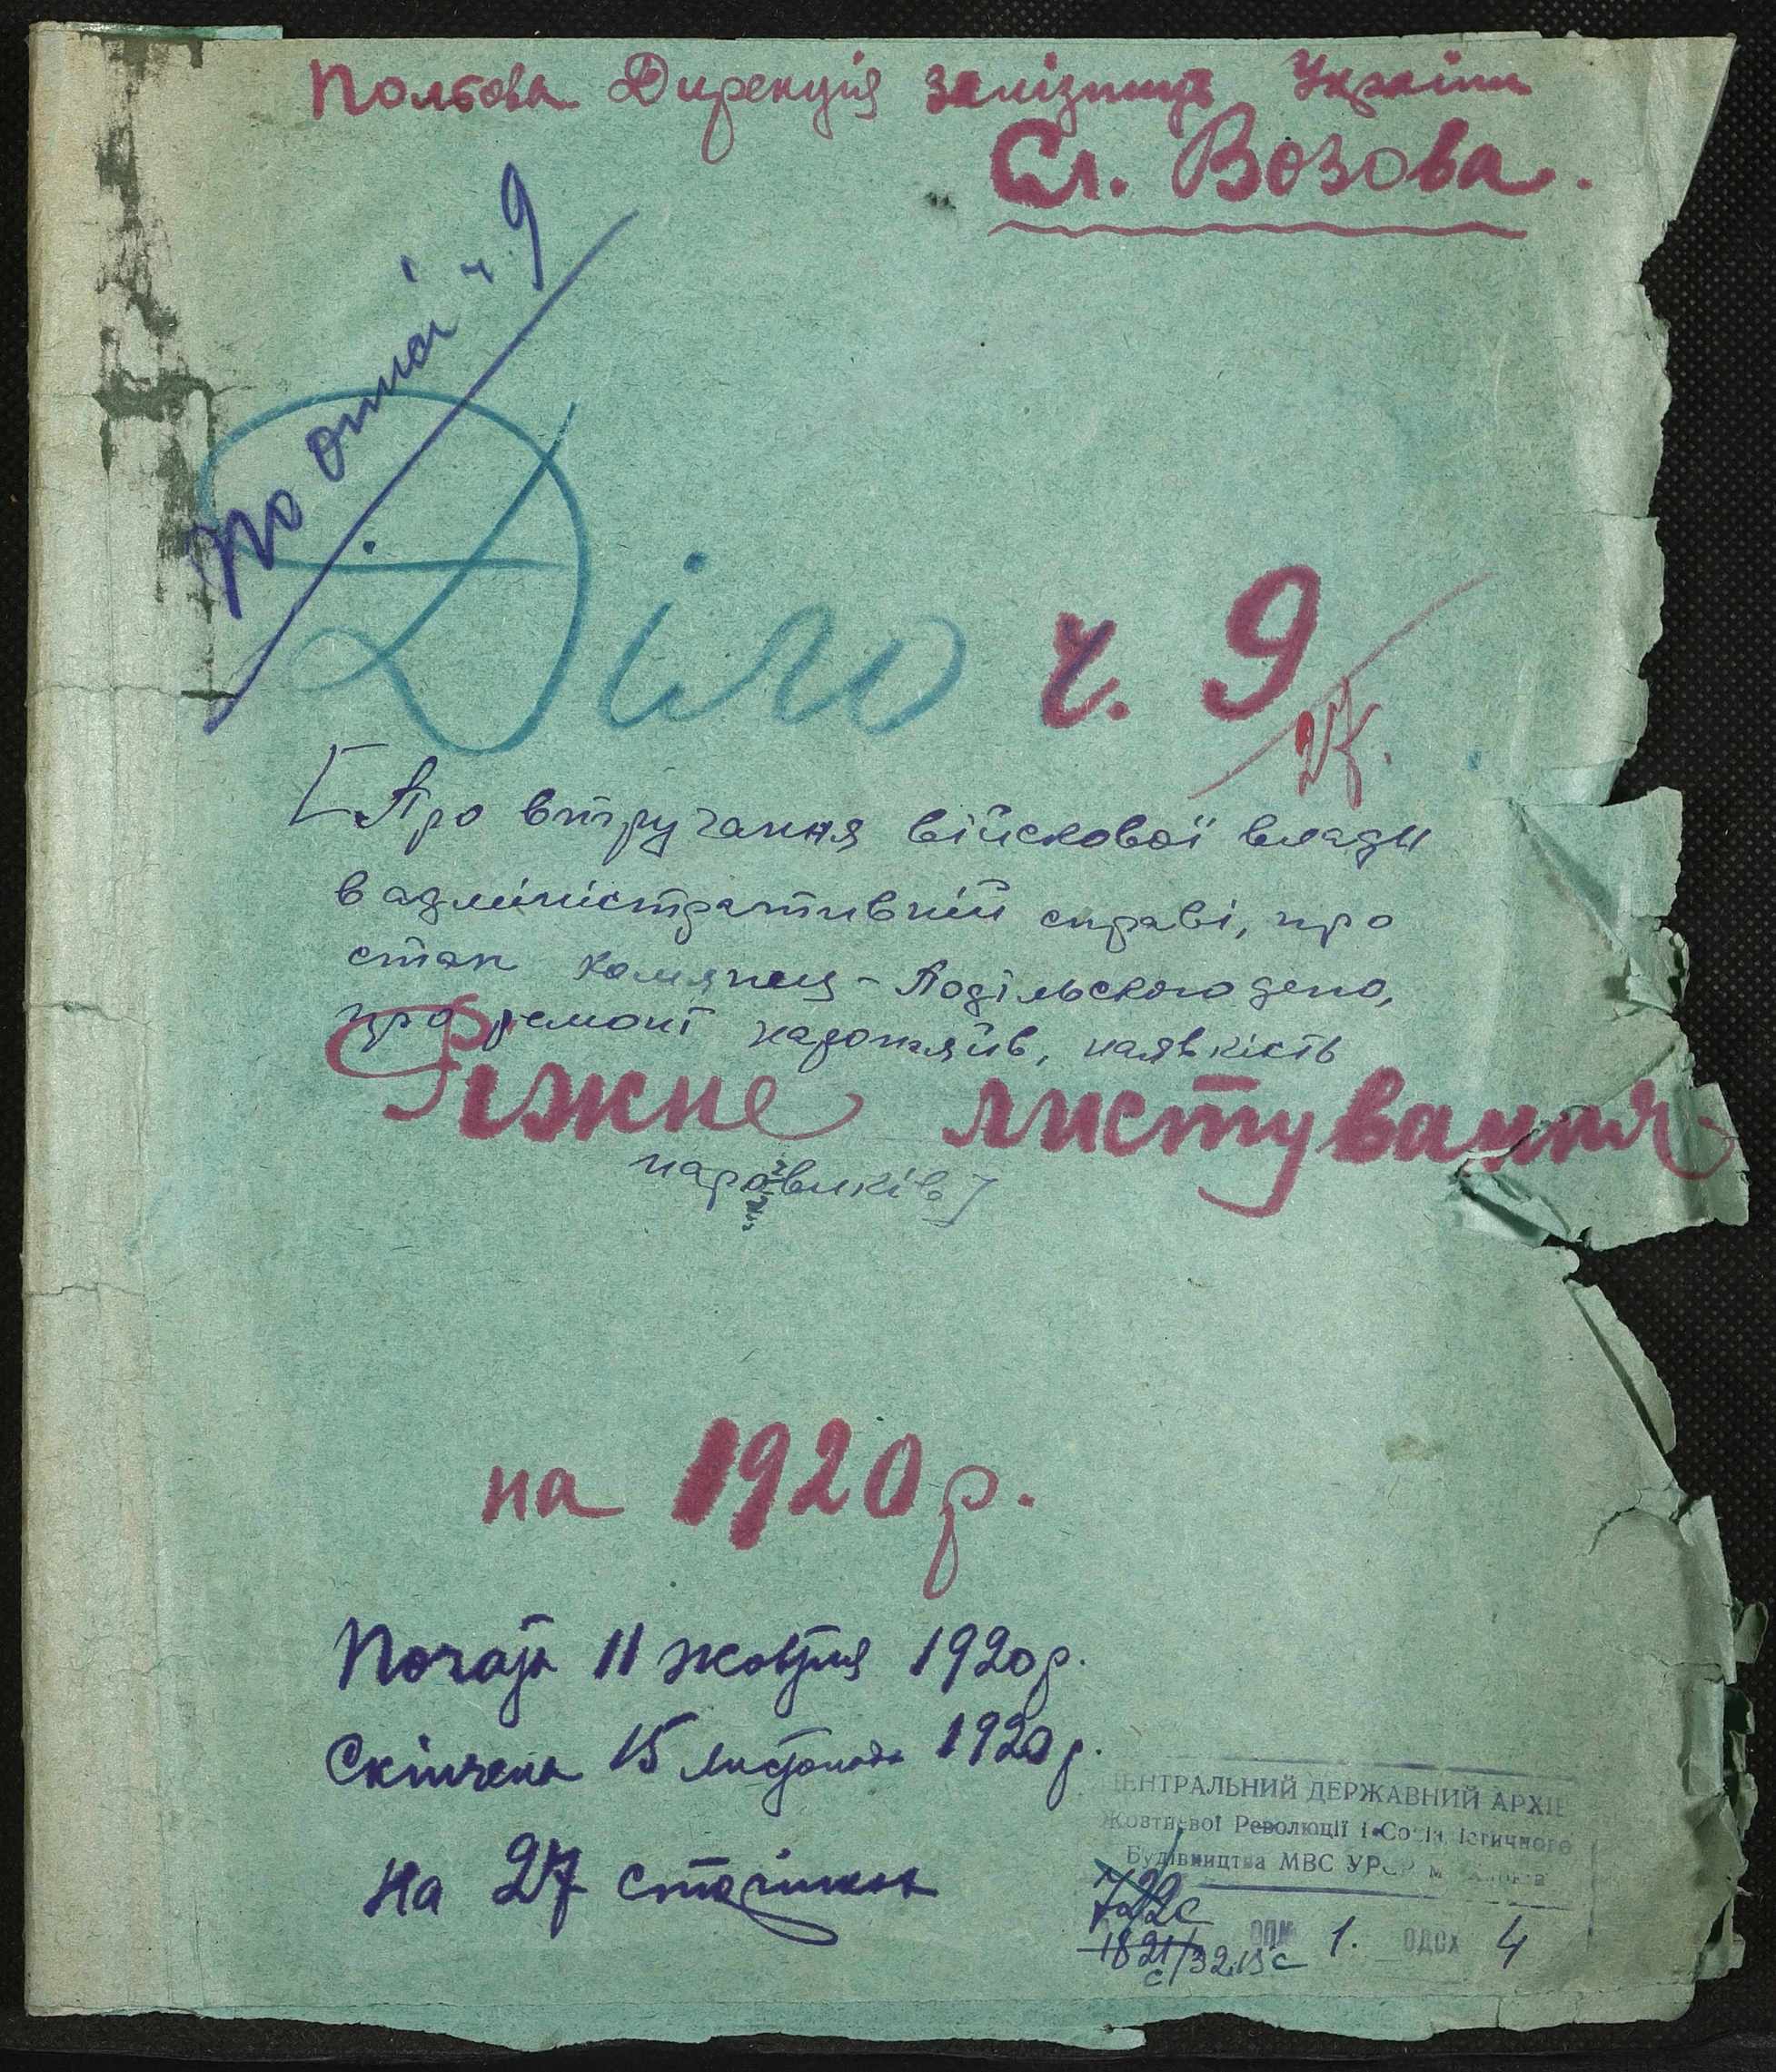 Польова Дирекція залізниць України
Сл. Возова.
По описі ч 9
Діло ч. 9
27.
[Про втручання військової влади
в адміністративній справі, про
стан Камянец-Подільского депо,
про ремонт паротягів, наявність
Ріжне листування
паровиків]
на 1920 р.
Почата 11 жовтня 1920 р.
Скінчена 15 листопада 1920 р.
На 27 сторінках
ЦЕНТРАЛЬНИЙ ДЕРЖАВНИЙ АРХІВ
Жовтневої Революції і Соціалістичного
Будівництва МВС УРСР м
722с
1821с/3215с ОПИС 1. ОДСХ 4